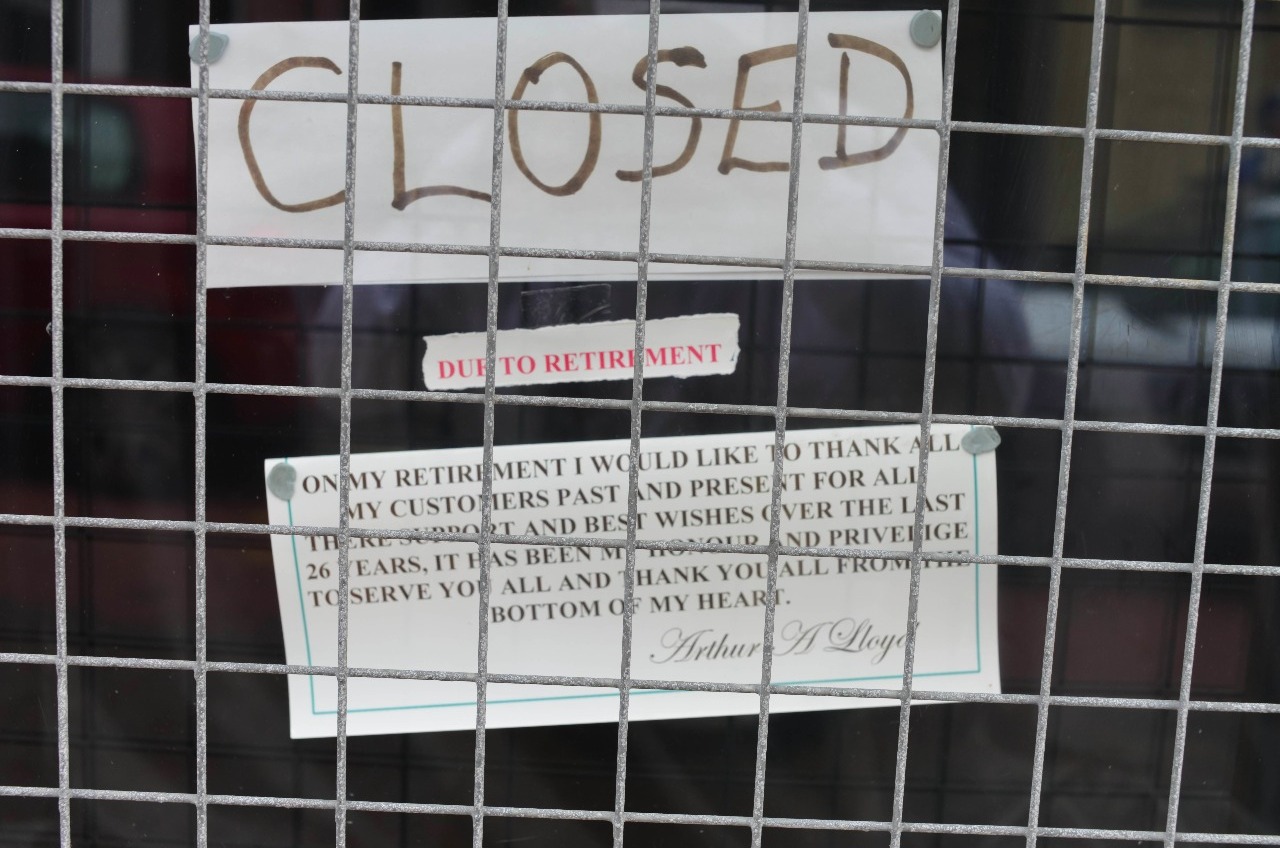 CLOSED
DUE TO RETIREMENT
ON MY RETIREMENT I WOULD LIKE TO THANK ALL
MY CUSTOMERS PAST AND PRESENT FOR ALL
THERE SUPPORT AND BEST WISHES OVER THE LAST
26 YEARS, IT HAS BEEN MY HONOUR AND PRIVELIGE
TO SERVE YOU ALL AND THANK YOU ALL FROM THE
BOTTOM OF MY HEART.
Arthur A Lloyd